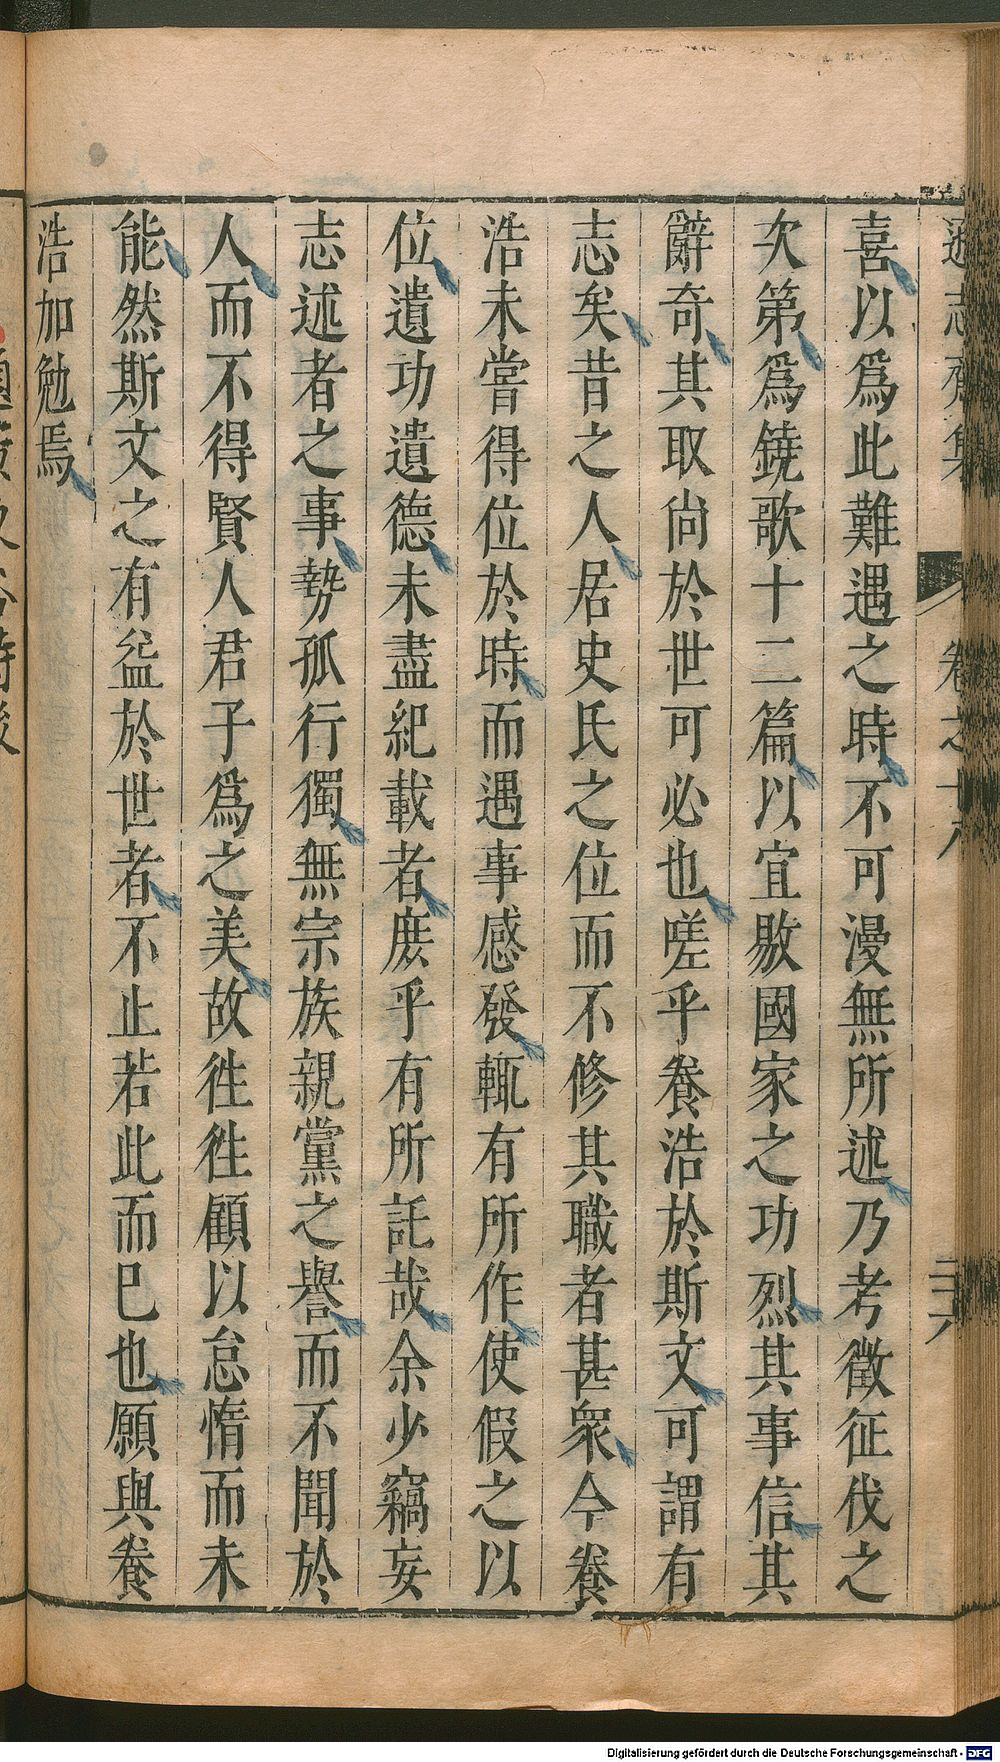 遜志齋集 卷之十八 三六
喜以爲此難遇之時不可漫無所述乃考徵征伐之
次第爲鐃歌十二篇以宜敭國家之功烈其事信其
辭奇其取尙於世可必也嗟乎養浩於斯文可謂有
志矣昔之人居史氏之位而不修其職者甚衆今養
浩未嘗得位於時而遇事感發輒有所作使假之以
位遺功遺德未盡紀載者庶乎有所託哉余少竊妄
志述者之事勢孤行獨無宗族親黨之譽而不聞於
人而不得賢人君子爲之美故徃徃顧以怠惰而未
能然斯文之有益於世者不止若此而巳也願與養
浩加勉焉
Digitalisierung gefördert durch die Deutsche Forschungsgemeinschaft - DFG